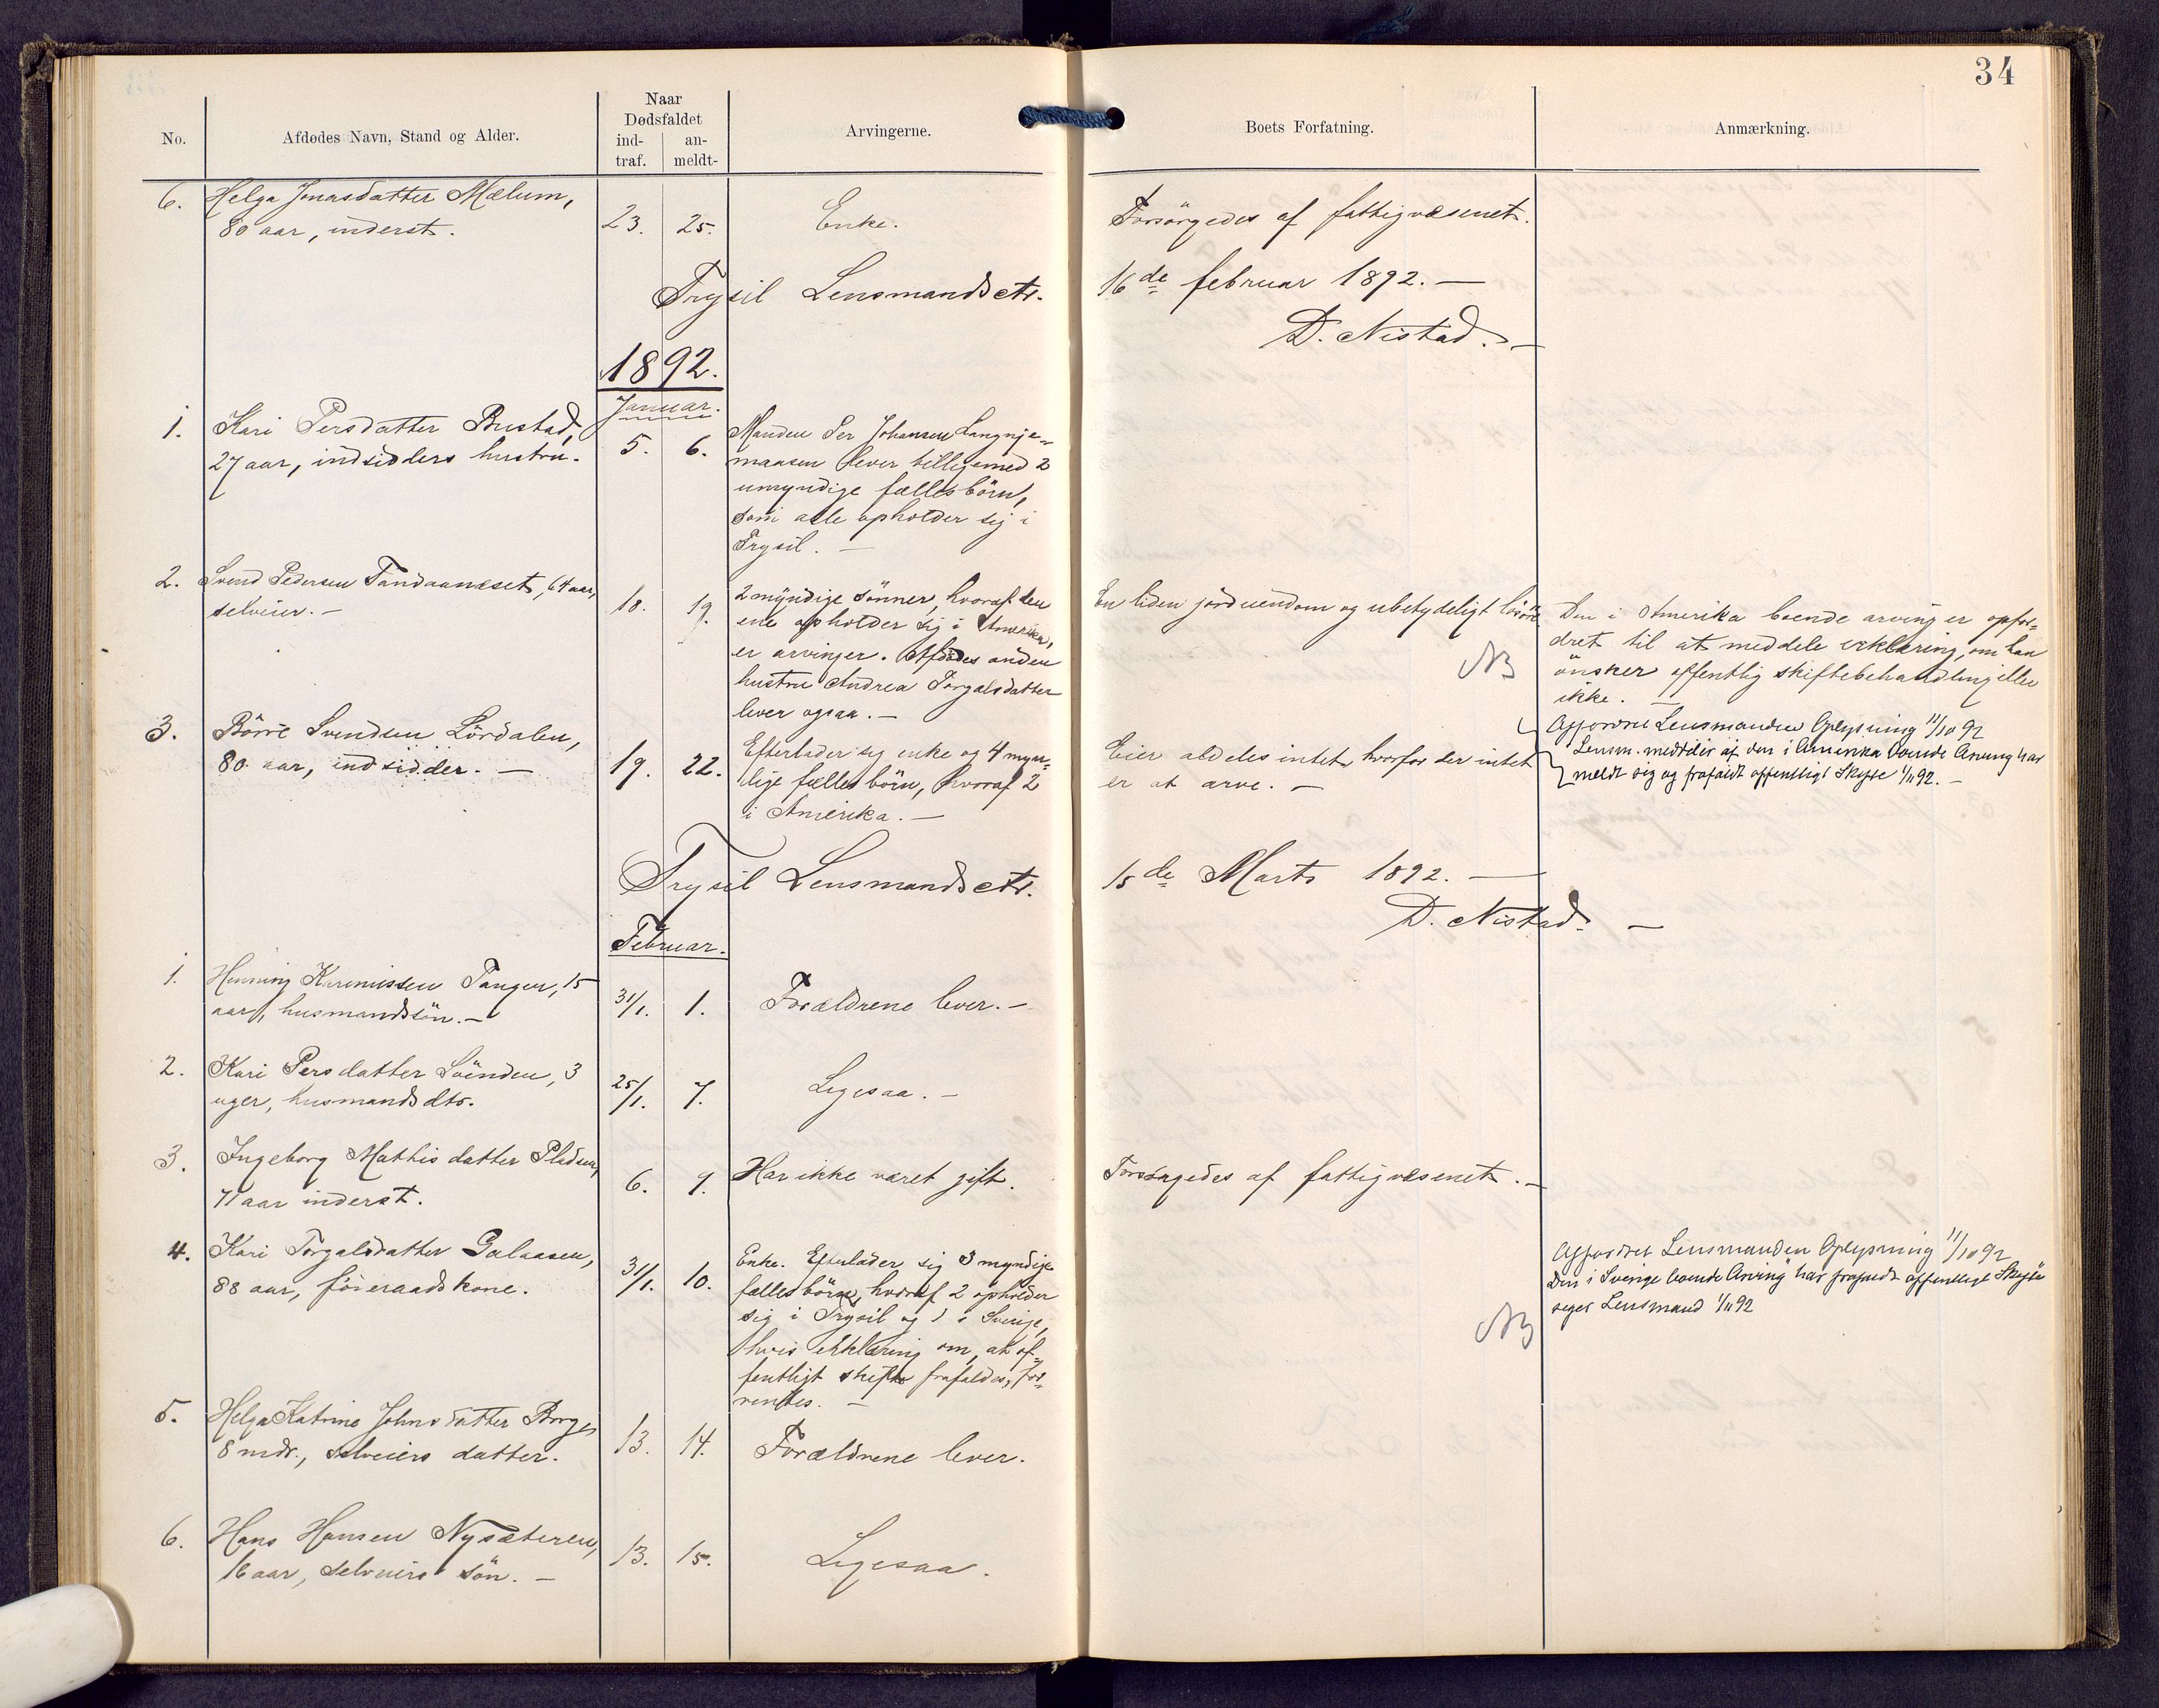 34
No.
Afdødes Navn, Stand og Alder.
Naar
Dødsfaldet
ind-
traf.
an-
meldt-
Arvingerne.
Boets Forfatning.
Anmærkning.
6. Helga Jonasdatter Mælum,
80 aar, inderst.
23. 25. Enke.
Forsörgedes af fattigvæsenet.
Trysil Lensmandsctr. 16de februar 1892. —
D. Nistad. —
1892.
Januar.
1. Kari Persdatter Bustad,
27 aar, indsidders hustru.
5. 6.
Manden Per Johansen Langnje-
maasen lever tilligemed 2
umyndige fællesbörn,
som alle opholder sig i
Trysil. —
2. Svend Pedersen Tandaaneset, 64 aar,
selveier. —
18. 19.
2 myndige sönner, hvoraf den
ene opholder sig i Amerika,
er arvinger. Afdödes anden
hustru Andrea Torgalsdatter
lever ogsaa. —
En liden jordeiendom og ubetydeligt lösöre
NB
Den i Amerika boende arving er opfor-
dret til at meddele erklæring, om han
önsker offentlig skiftebehandling eller
ikke. —
Affordret Lensmanden Oplysning 11/10 92
Lensm. meddeler af den i Amerika boende Arving har
meldt sig og frafaldt offentligt Skifte 1/11 92. —
3. Börre Svendsen Lördalen,
80 aar, indsidder. —
19. 22.
Efterlader sig enke og 4 myn-
dige fælles börn, hvoraf 2
i Amerika. —
Eier aldeles intet, hvorfor der intet
er at arve. —
Trysil Lensmandsctr. 15de Marts 1892. —
D. Nistad. —
Februar.
1. Henning Karenussen Tangen, 15
aar, husmandssön. —
31/1. 1. Forældrene lever. —
2. Kari Persdatter Löenden, 3
uger, husmandsdtr.
25/1. 7. Ligesaa. —
3. Ingeborg Mathisdatter Pladsen,
71 aar inderst.
6. 9. Har ikke været gift.
Forsörgedes af fattigvæsenet. —
4. Kari Torgalsdatter Galaasen,
88 aar, föieraadskone.
31/1. 10.
Enke. Efterlader sig 3 myndige
fælles börn, hvoraf 2 opholder
sig i Trysil og 1 i Sverige,
hvis erklæring om, at of-
fentligt skifte frafaldes, for-
ventes. —
NB
Affordret Lensmanden Oplysning 11/10 92
Den i Sverige boende Arving har frafaldt offentligt Skifte
siger Lensmand 1/11 92
5. Helga Katrine Johnsdatter Borgen
8 mdr., selveiers datter.
13. 14. Forældrene lever.
6. Hans Hansen Nysæteren,
16 aar, selveiers sön. —
13. 15. Ligesaa.